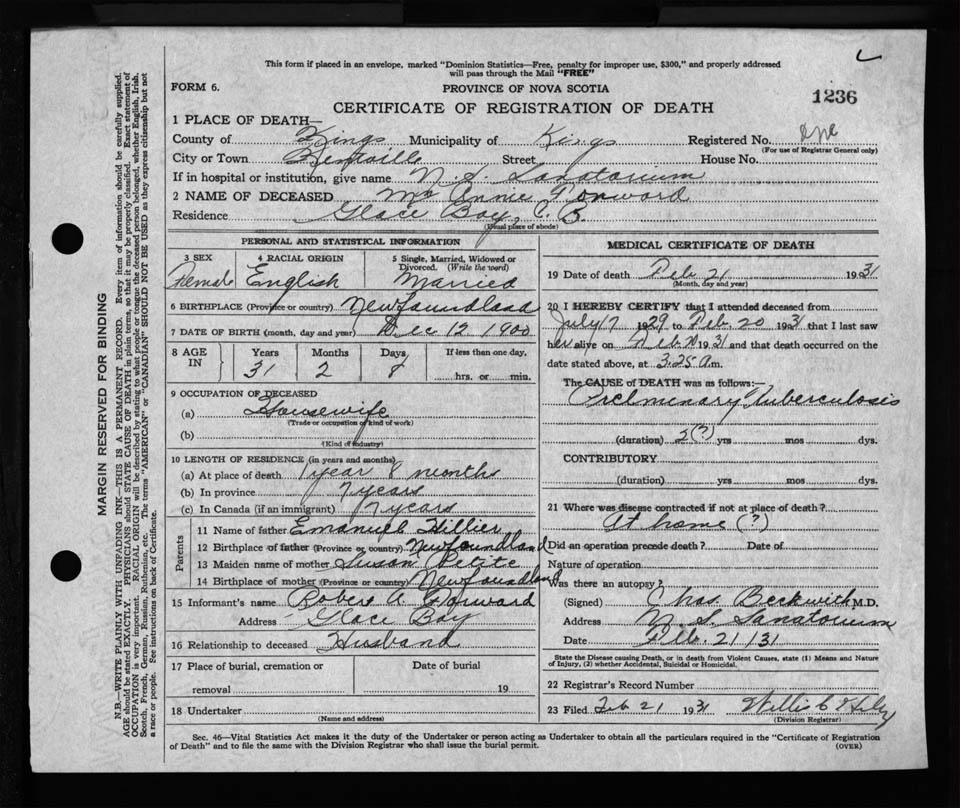 This form if placed in an envelope, marked "Dominion Statistics—Free, penalty for improper use, $300," and properly addressed
will pass through the Mail "FREE"
FORM 6.
PROVINCE OF NOVA SCOTIA
CERTIFICATE OF REGISTRATION OF DEATH
1236
1 PLACE OF DEATH—
County of Kings Municipality of Kings Registered No.
(For use of Registrar General only)
City or Town Kentville Street House No.
If in hospital or institution, give name N. S. Sanatorium
2 NAME OF DECEASED Annie Forward
Residence Glace Bay, C. B.
(Usual place of abode)
PERSONAL AND STATISTICAL INFORMATION
3 SEX
Female
4 RACIAL ORIGIN
English
5 Single, Married, Widowed or
Divorced. (Write the word)
Married
6 BIRTHPLACE (Province or country) Newfoundland
7 DATE OF BIRTH (month, day and year) Dec 12 1900
8 AGE
IN
Years
31
Months
2
Days
8
If less than one day,
hrs. or min.
9 OCCUPATION OF DECEASED
(a) Housewife
(Trade or occupation or kind of work)
(b)
(Kind of industry)
10 LENGTH OF RESIDENCE (in years and months)
(a) At place of death 1 year 8 months
(b) In province 7 years
(c) In Canada (if an immigrant) 7 years
Parents
11 Name of father Emanuel Hillier
12 Birthplace of father (Province or country) Newfoundland
13 Maiden name of mother Susan Petite
14 Birthplace of mother (Province or country) Newfoundland
15 Informant's name Robert A. Forward
Address Glace Bay
16 Relationship to deceased Husband
17 Place of burial, cremation or
removal
Date of burial
19
18 Undertaker
(Name and address)
MEDICAL CERTIFICATE OF DEATH
19 Date of death Feb 21 1931
(Month, day and year)
20 I HEREBY CERTIFY that I attended deceased from
July 17 1929 to Feb. 20 1931 that I last saw
her alive on Feb 1931 and that death occurred on the
date stated above, at 3.25 a.m.
The CAUSE of DEATH was as follows:—
Tuberculosis
(duration) 2(?) yrs mos dys.
CONTRIBUTORY
(duration) yrs mos dys.
21 Where was disease contracted if not at place of death?
At home (?)
Did an operation precede death? Date of
Nature of operation
Was there an autopsy?
(Signed) Chas. Beckwith M.D.
Address N. S. Sanatorium
Date Feb. 21/31
State the Disease causing Death, or in death from Violent Causes, state (1) Means and Nature
of Injury, (2) whether Accidental, Suicidal or Homicidal.
22 Registrar's Record Number
23 Filed Feb 21 1931
(Division Registrar)
Sec. 46—Vital Statistics Act makes it the duty of the Undertaker or person acting as Undertaker to obtain all the particulars required in the "Certificate of Registration
of Death" and to file the same with the Division Registrar who shall issue the burial permit.
(OVER)
MARGIN RESERVED FOR BINDING
N.B.—WRITE PLAINLY WITH UNFADING INK—THIS IS A PERMANENT RECORD. Every item of information should be carefully supplied.
AGE should be stated EXACTLY. PHYSICIANS should STATE CAUSE OF DEATH in plain terms, so that it may be properly classified. Exact statement of
OCCUPATION is very important. RACIAL ORIGIN will be described by stating to what people or tongue the deceased person belonged, whether English, Irish,
Scotch, French, German, Russian, Ruthenian, etc. The terms "AMERICAN" or "CANADIAN" SHOULD NOT BE USED as they express citizenship but not
a race or people. See instructions on back of Certificate.